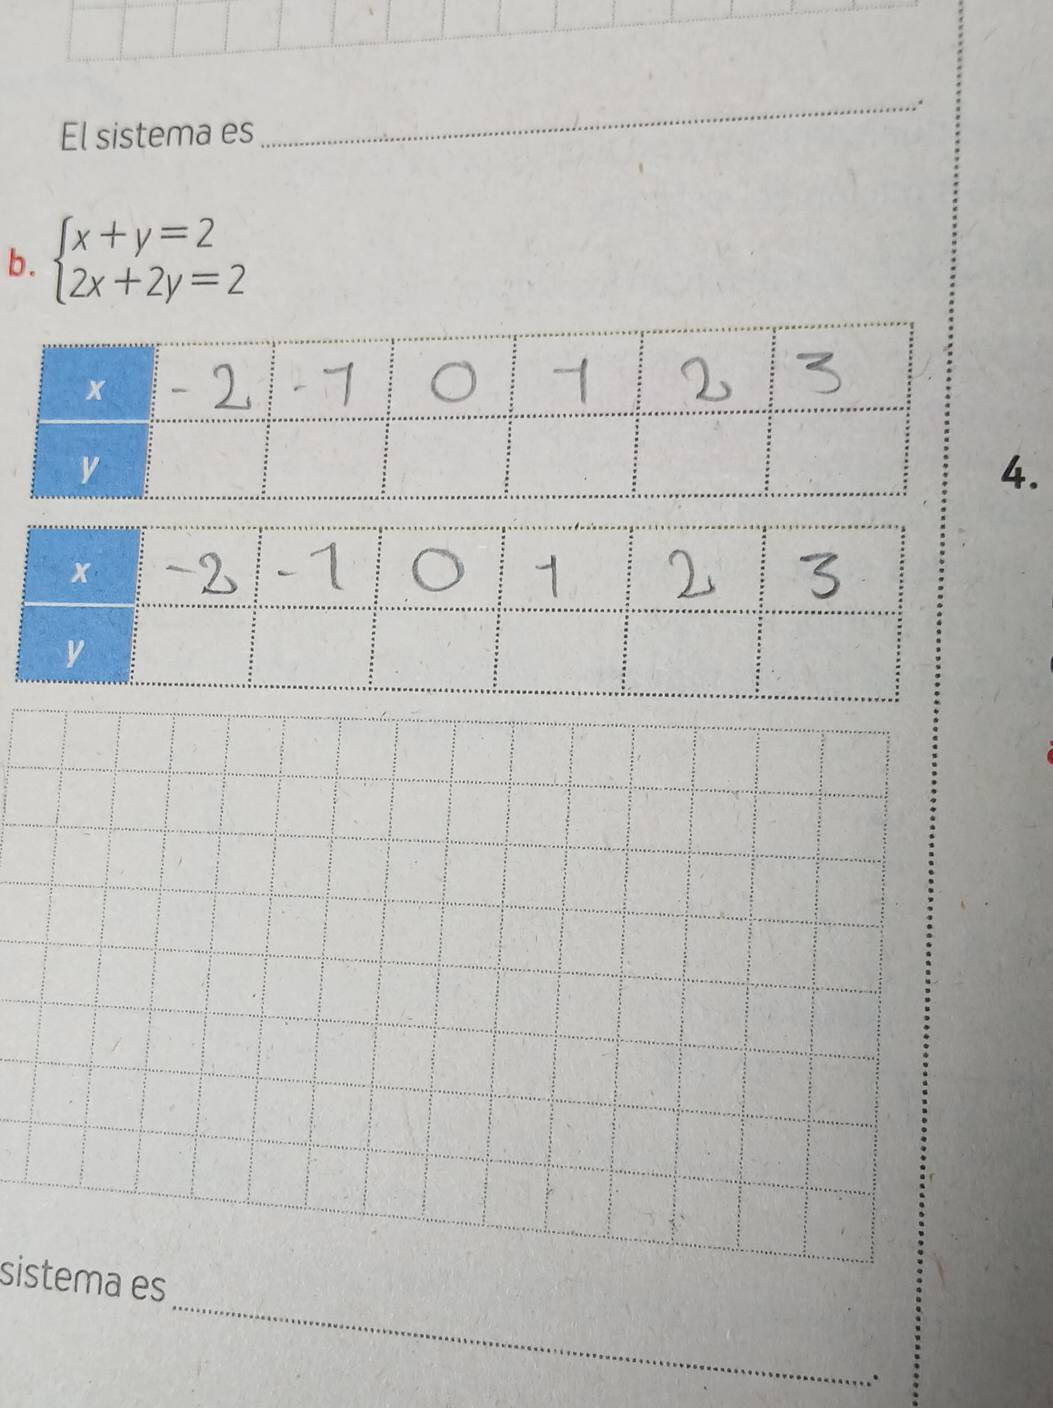 El sistema es
b. {x + y = 2
2x + 2y = 2
x -2 -1 0 1 2 3
y
4.
x -2 -1 0 1 2 3
y
sistema es